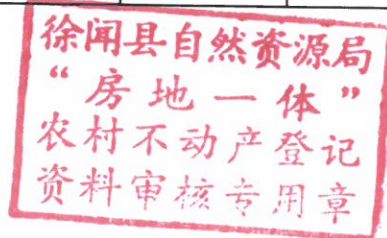 徐闻县自然资源局
“房地一体”
农村不动产登记
资料审核专用章